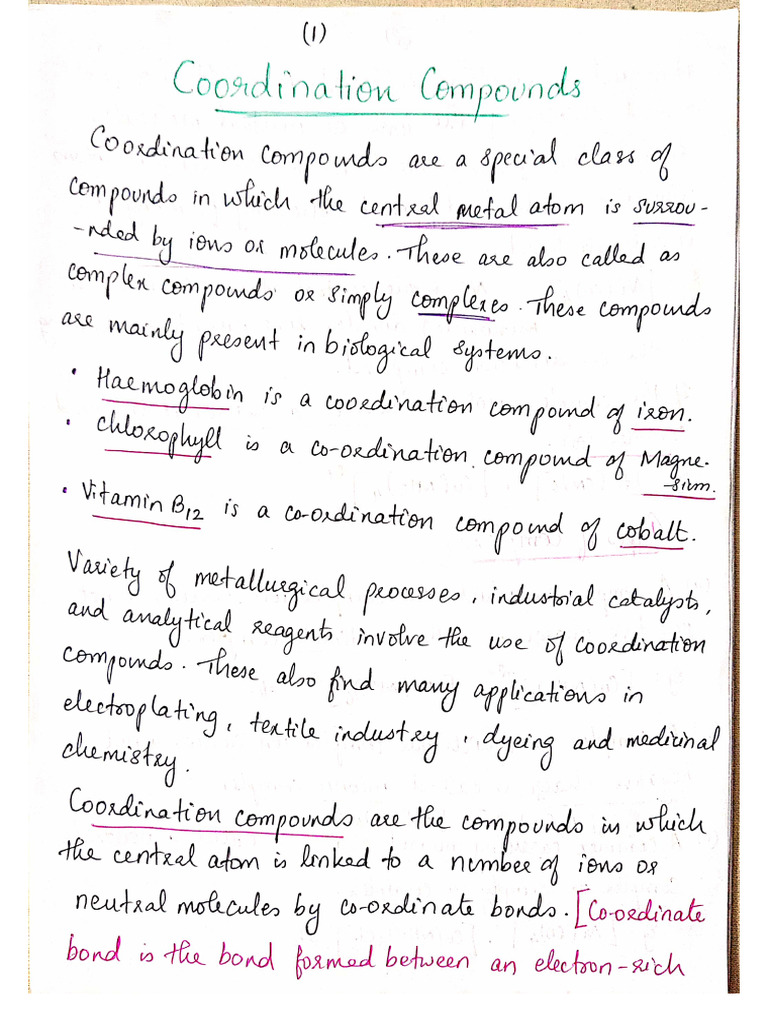 (1)
Coordination Compounds
Coordination compounds are a special class of
compounds in which the central metal atom is surrou-
-nded by ions or molecules. These are also called as
complex compounds or simply complexes. These compounds
are mainly present in biological systems.
• Haemoglobin is a coordination compound of iron.
• Chlorophyll is a co-ordination compound of Magne-
-sium.
• Vitamin B12 is a co-ordination compound of cobalt.
Variety of metallurgical processes, industrial catalysts,
and analytical reagents involve the use of coordination
compounds. These also find many applications in
electroplating, textile industry, dyeing and medicinal
chemistry.
Coordination compounds are the compounds in which
the central atom is linked to a number of ions or
neutral molecules by co-ordinate bonds. [Co-ordinate
bond is the bond formed between an electron-rich